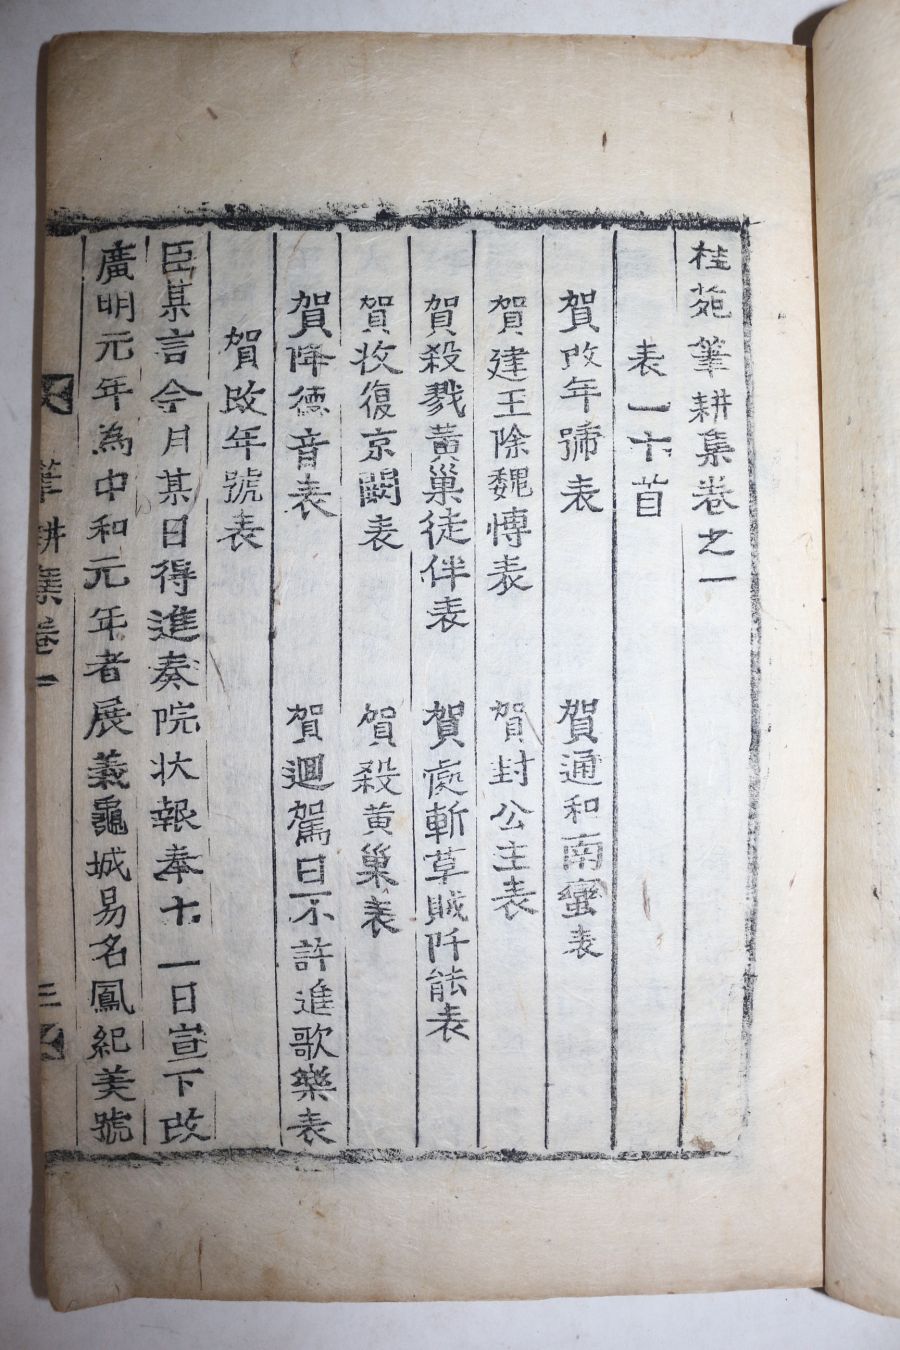 桂苑筆耕集卷之一
表一十首
賀改年號表 賀通和南蠻表
賀建王除魏愽表 賀封公主表
賀殺戮黃巢徒伴表 賀處斬草賊阡能表
賀收復京闕表 賀殺黃巢表
賀降德音表 賀迴駕日不許進歌樂表
賀改年號表
臣某言今月某日得進奏院狀報奉十一日宣下改
廣明元年為中和元年者展義龜城易名鳳紀美號
筆耕集卷一